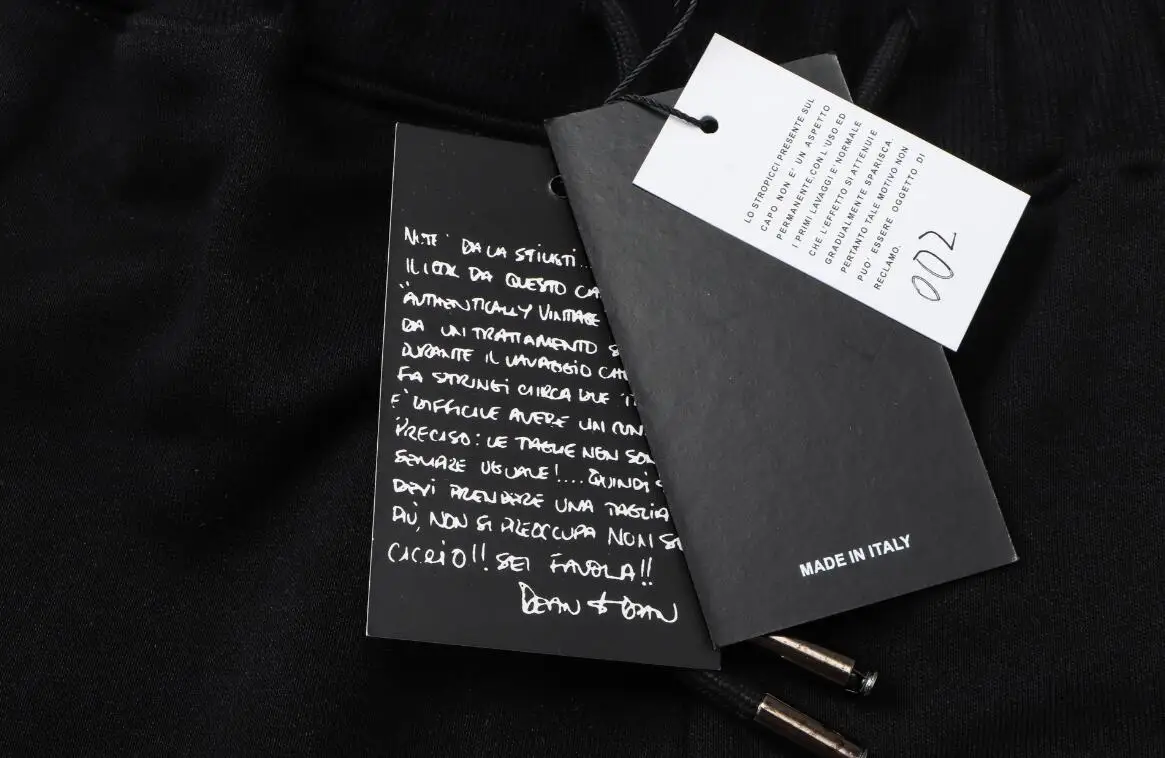 NOTE DA LA STILISTI...
IL LOOK DA QUESTO CA
"AUTHENTICALLY VINTAGE
DA UN TRATTAMENTO S
DURANTE IL LAVAGGIO CH
FA STRINGI CIRCA DUE T
E' DIFFICILE AVERE UN
PRECISO: LE TAGLIE NEN SON
SEMPRE UGUALE!... QUINDI S
DEVI PRENDERE UNA TAGLIA
PIÙ, NON SI PREOCCUPA NON SE
CICCIO!! SEI FAVOLA!!
DEAN & DAN
LO STROPICCI PRESENTE SUL
CAPO NON E' UN ASPETTO
PERMANENTE.CON L'USO ED
I PRIMI LAVAGGI E' NORMALE
CHE L'EFFETTO SI ATTENUI E
GRADUALMENTE SPARISCA.
PERTANTO TALE MOTIVO NON
PUO' ESSERE OGGETTO DI
RECLAMO.
002
MADE IN ITALY